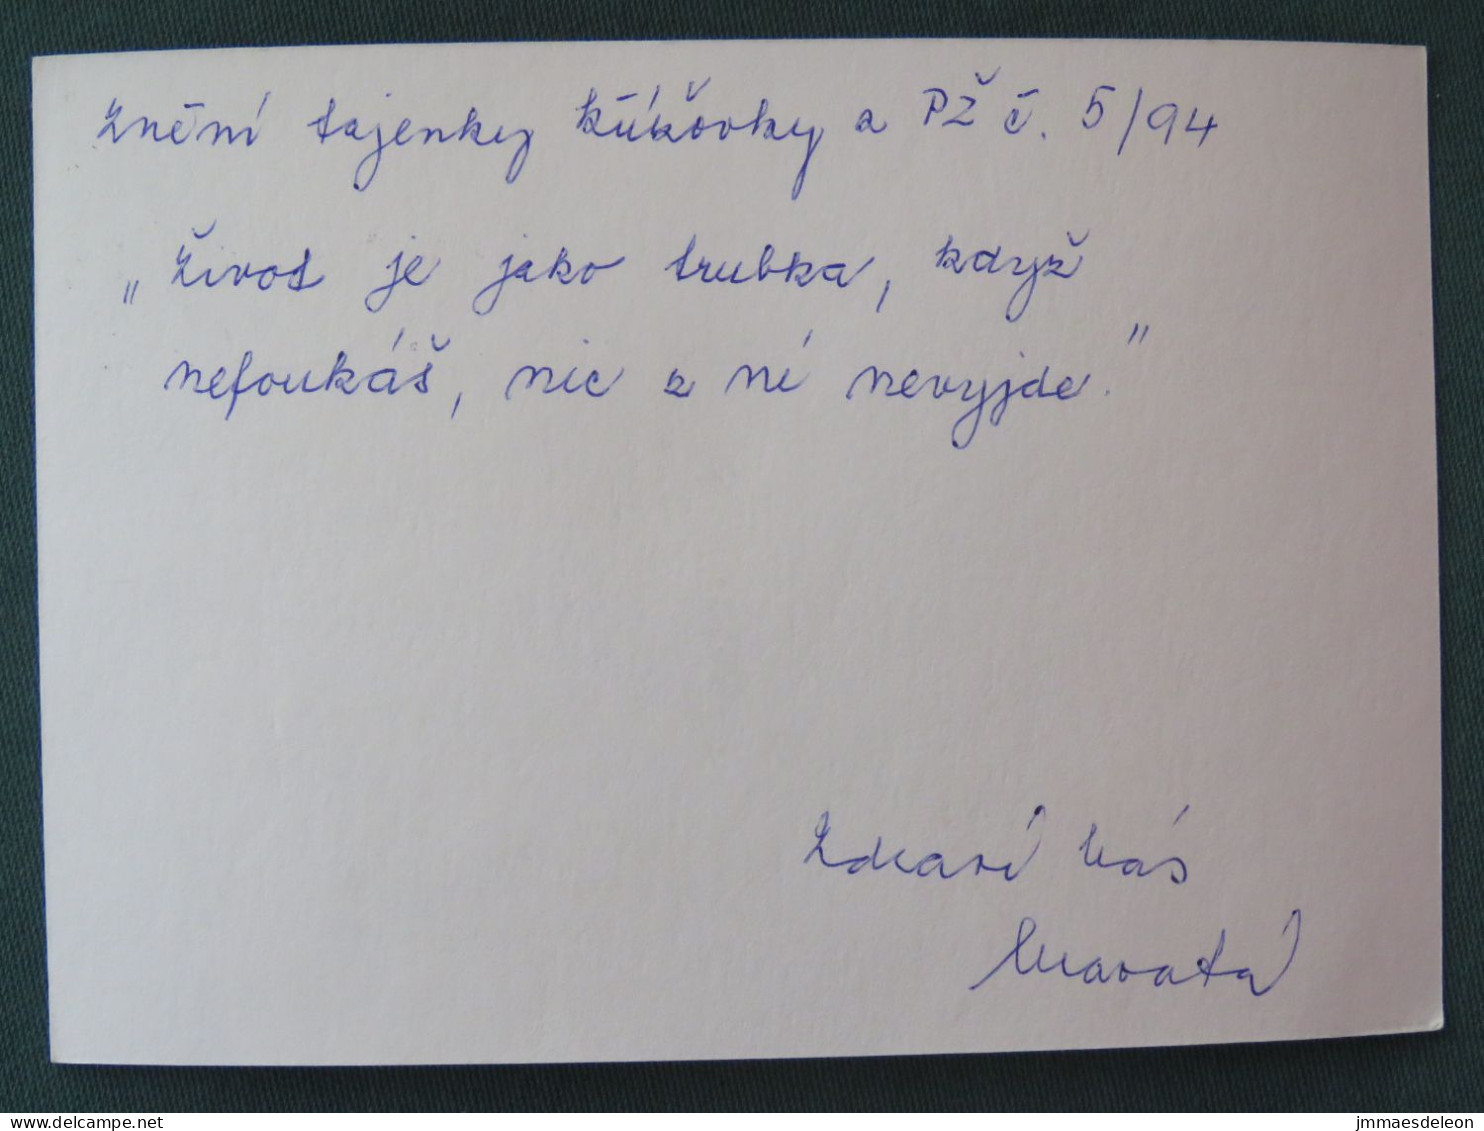 Znění tajenky křížovky z PŽ č. 5/94
„Život je jako trubka, když
nefoukáš, nic z ní nevyjde."
Zdraví Vás
delcampe.net
jmmaesdeleon